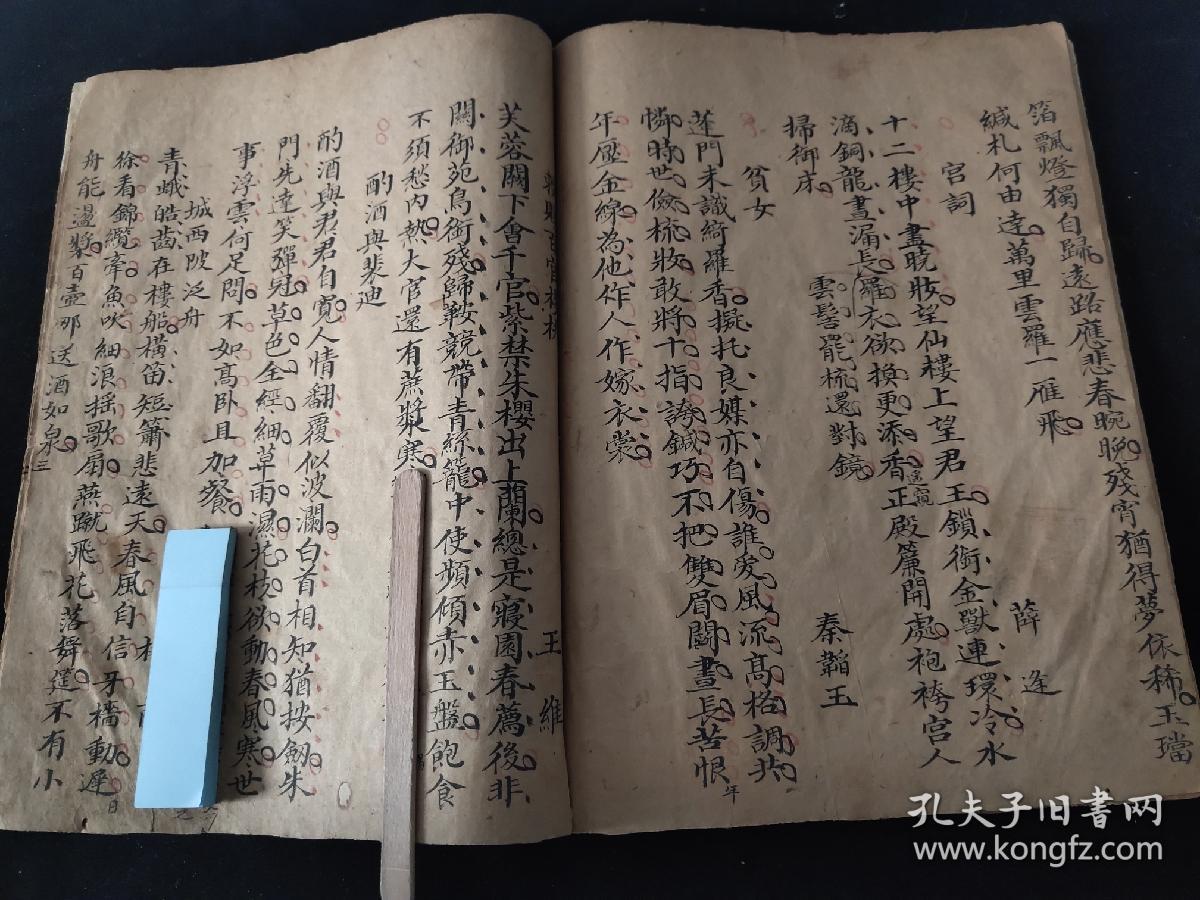 箔飄燈獨自歸遠路應悲春晼晚殘宵猶得夢依稀玉璫
緘札何由達萬里雲羅一雁飛
宮詞 薛逢
十二樓中盡曉妝望仙樓上望君王鎖銜金獸連環冷水
滴銅龍晝漏長 雲髻罷梳還對鏡
羅衣欲換更添香遙窺正殿簾開處袍袴宮人
掃御床
貧女 秦韜玉
蓬門未識綺羅香擬托良媒亦自傷誰愛風流高格調共
憐時世儉梳妝敢將十指誇鍼巧不把雙眉鬪畫長苦恨年
年壓金線為他作人作嫁衣裳
王維
芙蓉闕下會千官紫禁朱櫻出上闌總是寢園春薦後非
關御苑鳥銜殘歸鞍競帶青絲籠中使頻傾赤玉盤飽食
不須愁內熱大官還有蔗漿寒
酌酒與裴迪
酌酒與君君自寬人情翻覆似波瀾白首相知猶按劍朱
門先達笑彈冠草色全經細草雨濕花枝欲動春風寒世
事浮雲何足問不如高卧且加餐
城西陂泛舟
青蛾皓齒在樓船橫笛短簫悲遠天春風自信牙檣動遲日
徐看錦纜牽魚吹細浪搖歌扇燕蹴飛花落舞筵不有小
舟能盪槳百壺那送酒如泉三
孔夫子旧書网
www.kongfz.com